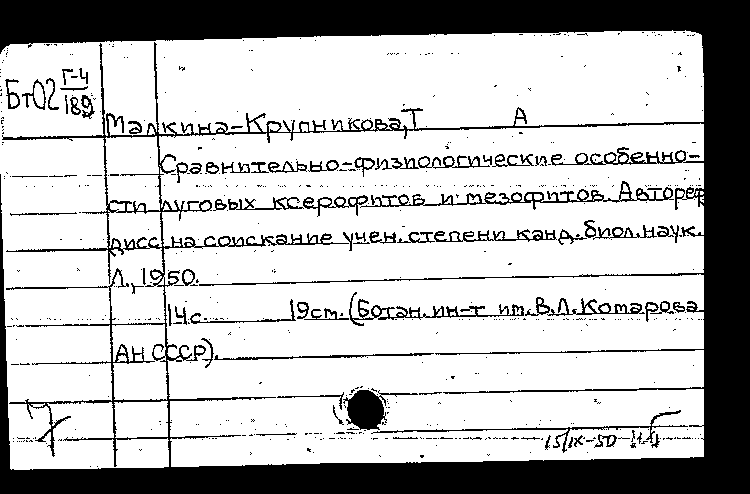 Бт02 Г-4/189
Малкина-Крупникова, Т А
Сравнительно-физиологические особенно-
сти луговых ксерофитов и мезофитов. Автореф
дисс на соискание учен. степени канд. биол. наук.
Л., 1950.
14с. 19см. (Ботан. ин-т им. В.Л. Комарова
АН СССР).
15/IX-50